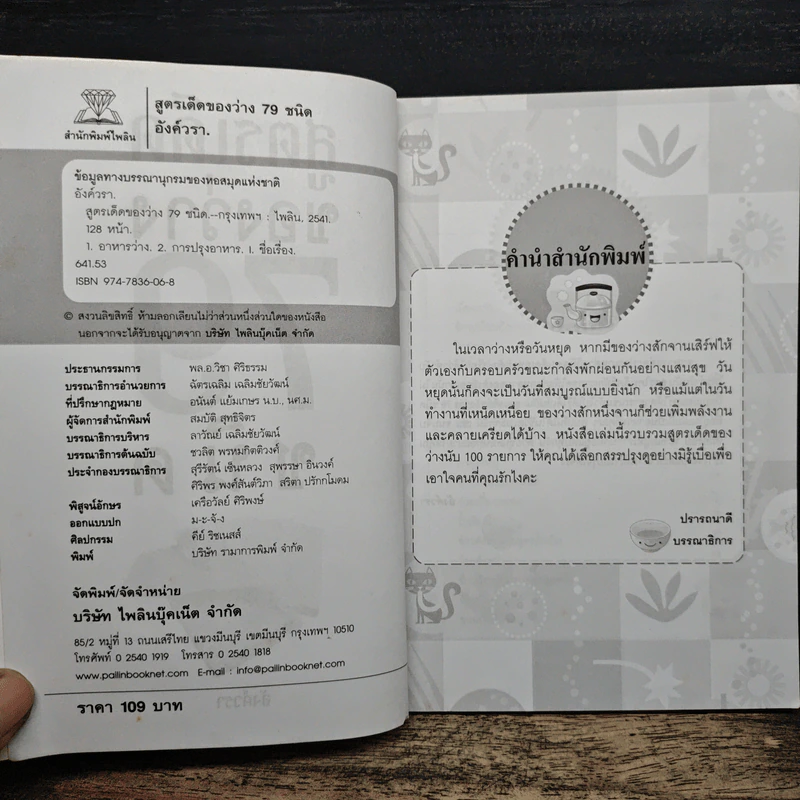 สำนักพิมพ์ไพลิน
สูตรเด็ดของว่าง 79 ชนิด
อังค์วรา.
ข้อมูลทางบรรณานุกรมของหอสมุดแห่งชาติ
อังค์วรา.
สูตรเด็ดของว่าง 79 ชนิด.--กรุงเทพฯ : ไพลิน, 2541.
128 หน้า.
1. อาหารว่าง. 2. การปรุงอาหาร. I. ชื่อเรื่อง.
641.53
ISBN 974-7836-06-8
© สงวนลิขสิทธิ์ ห้ามลอกเลียนไม่ว่าส่วนหนึ่งส่วนใดของหนังสือ
นอกจากจะได้รับอนุญาตจาก บริษัท ไพลินบุ๊คเน็ต จำกัด
ประธานกรรมการ พล.อ.วิชา ศิริธรรม
บรรณาธิการอำนวยการ ฉัตรเฉลิม เฉลิมชัยวัฒน์
ที่ปรึกษากฎหมาย อนันต์ แย้มเกษร น.บ., นศ.ม.
ผู้จัดการสำนักพิมพ์ สมบัติ สุทธิจิตร
บรรณาธิการบริหาร ลาวัณย์ เฉลิมชัยวัฒน์
บรรณาธิการต้นฉบับ ชวลิต พรหมกิตติวงค์
ประจำกองบรรณาธิการ สุรีรัตน์ เซ็นหลวง สุพรรษา อินวงค์
ศิริพร พงศ์สันต์วิภา สริตา ปรักกโมดม
พิสูจน์อักษร เครือวัลย์ ศิริพงษ์
ออกแบบปก ม-ะ-จั-ง
ศิลปกรรม คีย์ วิชเนสส์
พิมพ์ บริษัท รามาการพิมพ์ จำกัด
จัดพิมพ์/จัดจำหน่าย
บริษัท ไพลินบุ๊คเน็ต จำกัด
85/2 หมู่ที่ 13 ถนนเสรีไทย แขวงมีนบุรี เขตมีนบุรี กรุงเทพฯ 10510
โทรศัพท์ 0 2540 1919 โทรสาร 0 2540 1818
www.pailinbooknet.com E-mail : info@pailinbooknet.com
ราคา 109 บาท
คำนำสำนักพิมพ์
ในเวลาว่างหรือวันหยุด หากมีของว่างสักจานเสิร์ฟให้
ตัวเองกับครอบครัวขณะกำลังพักผ่อนกันอย่างแสนสุข วัน
หยุดนั้นก็คงจะเป็นวันที่สมบูรณ์แบบยิ่งนัก หรือแม้แต่ในวัน
ทำงานที่เหน็ดเหนื่อย ของว่างสักหนึ่งจานก็ช่วยเพิ่มพลังงาน
และคลายเครียดได้บ้าง หนังสือเล่มนี้รวบรวมสูตรเด็ดของ
ว่างนับ 100 รายการ ให้คุณได้เลือกสรรปรุงดูอย่างมิรู้เบื่อเพื่อ
เอาใจคนที่คุณรักไงคะ
ปรารถนาดี
บรรณาธิการ